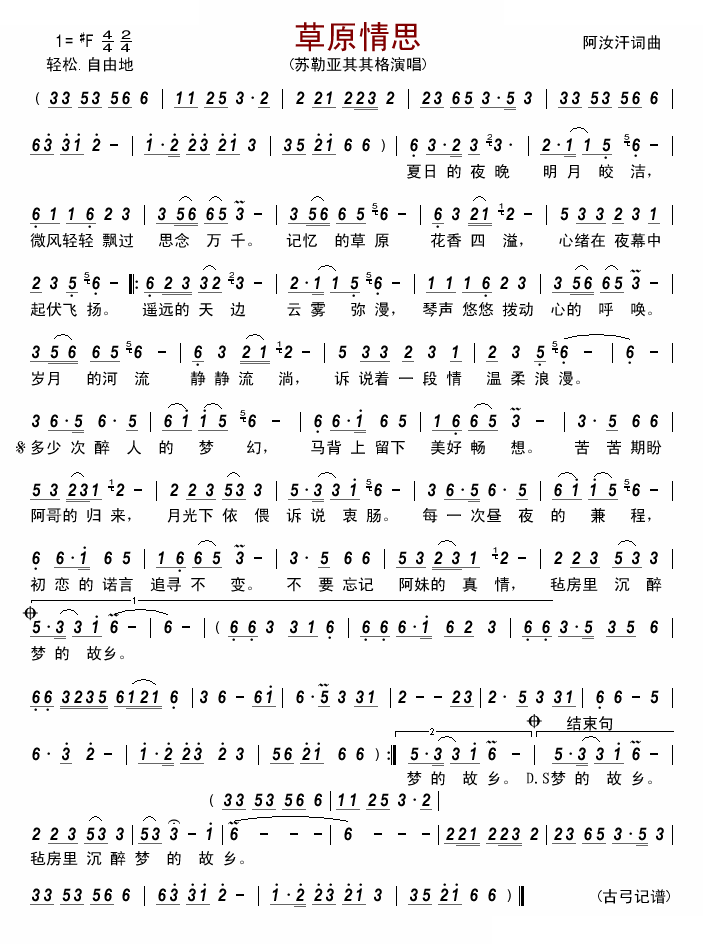 草原情思
1= #F 4/4 2/4
阿汝汗词曲
轻松.自由地
(苏勒亚其其格演唱)
( 33 53 56 6 | 11 25 3·2 | 2 21 223 2 | 23 65 3·5 3 | 33 53 56 6 |
63 31 2 - | 1·2 23 21 3 | 35 21 6 6 ) | 6 3·2 3 23· | 2·1 1 5 56 - |
夏日 的 夜 晚 明 月 皎 洁,
6 1 1 6 2 3 | 3 56 65 3 - | 3 56 6 5 56 - | 6 3 21 12 - | 5 3 3 2 3 1 |
微风轻轻 飘过 思念 万 千。 记忆 的草 原 花香 四 溢, 心绪在 夜幕中
2 3 5 56 - |: 6 2 3 32 23 - | 2·1 1 5 56 - | 1 1 1 6 2 3 | 3 56 65 3 - |
起伏飞 扬。 遥远的 天 边 云 雾 弥 漫, 琴声 悠悠 拨动 心的 呼 唤。
3 56 6 5 56 - | 6 3 21 12 - | 5 3 3 2 3 1 | 2 3 5 56 - | 6 - |
岁月 的河 流 静 静 流 淌, 诉 说着 一 段 情 温 柔 浪 漫。
3 6·5 6·5 | 61 15 56 - | 6 6·1 6 5 | 1 6 65 3 - | 3·5 6 6 |
𝄋多少 次 醉 人 的 梦 幻, 马背 上 留下 美好 畅 想。 苦 苦 期盼
5 3 231 12 - | 2 2 3 53 3 | 5·3 3 1 56 - | 3 6·5 6·5 | 61 15 56 - |
阿哥的 归 来, 月光下 依 偎 诉 说 衷 肠。 每 一 次昼 夜 的 兼 程,
6 6·1 6 5 | 1 6 65 3 - | 3·5 6 6 | 53 231 12 - | 2 2 3 53 3 |
初 恋 的 诺言 追寻 不 变。 不 要 忘记 阿妹的 真 情, 毡房里 沉 醉
1
5·3 3 1 6 - | 6 - | ( 66 3 31 6 | 66 6·1 6 2 3 | 66 3·5 3 5 6 |
梦 的 故乡。
66 3235 6121 6 | 3 6 - 61 | 6·5 3 31 | 2 - - 23 | 2·5 3 31 | 6 6 - 5 |
结束句
6·3 2 - | 1·2 23 2 3 | 56 21 6 6 ) :| 2 5·3 3 1 6 - | 5·3 3 1 6 - |
梦 的 故 乡。 D.S梦 的 故 乡。
( 33 53 56 6 | 11 25 3·2 |
2 2 3 53 3 | 53 3 - 1 | 6 - - - | 6 - - - | 221 223 2 | 23 65 3·5 3 |
毡房里 沉 醉 梦 的 故 乡。
33 53 56 6 | 63 31 2 - | 1·2 23 21 3 | 35 21 6 6 ) ‖
(古弓记谱)